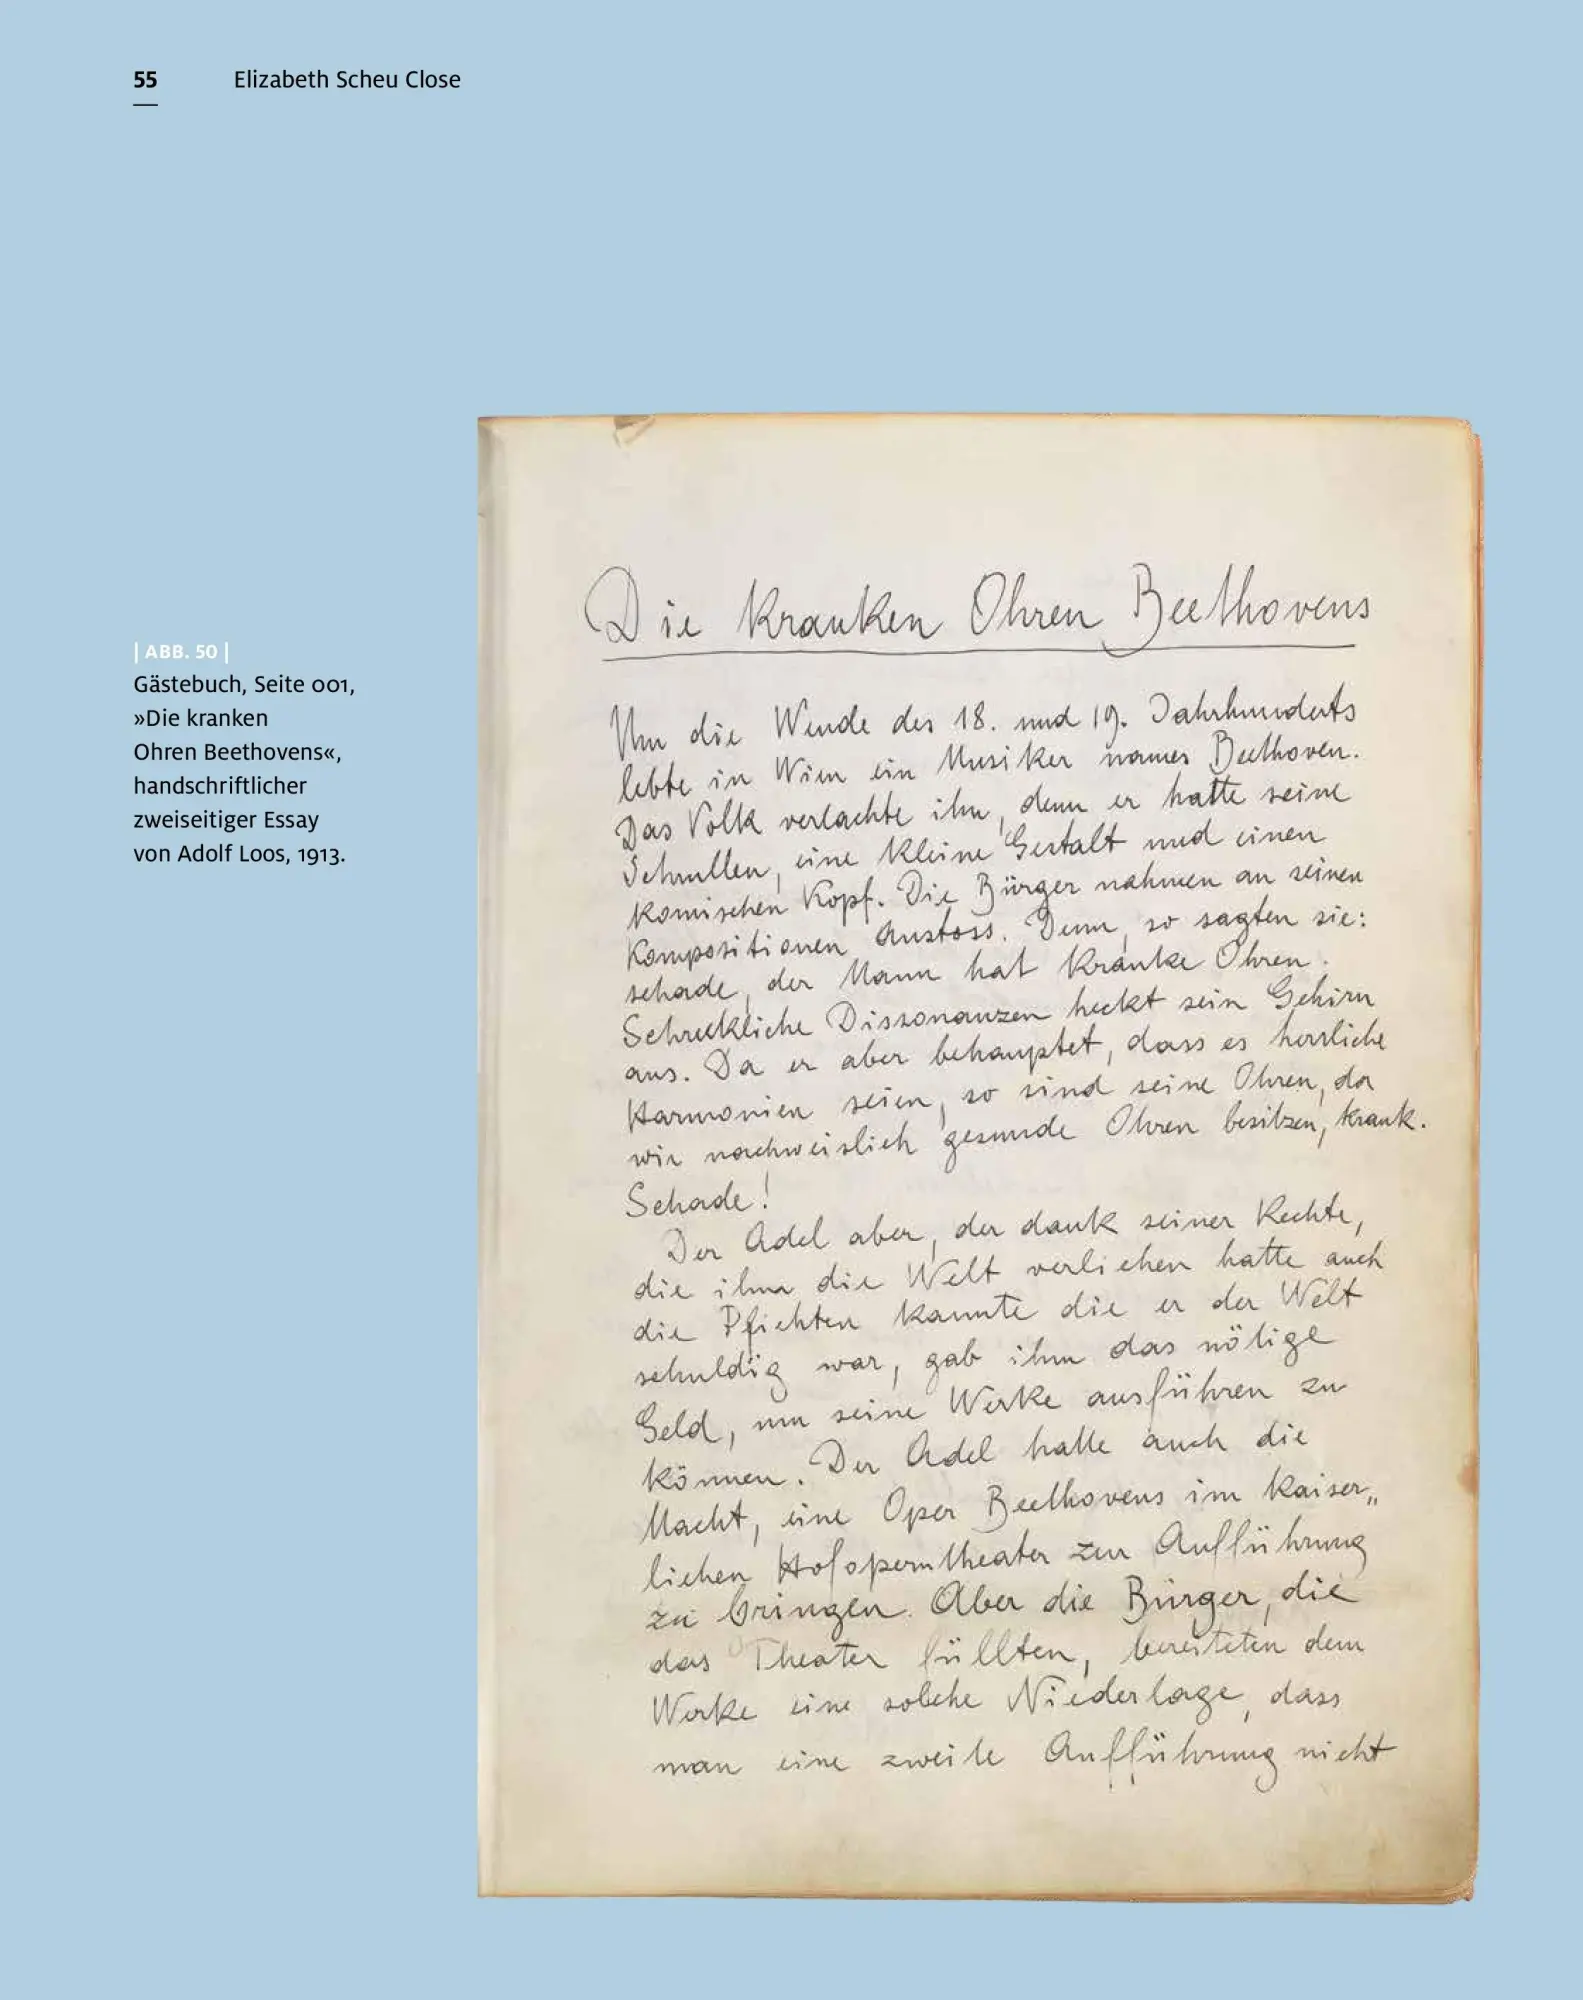 55 Elizabeth Scheu Close
| ABB. 50 |
Gästebuch, Seite 001,
»Die kranken
Ohren Beethovens«,
handschriftlicher
zweiseitiger Essay
von Adolf Loos, 1913.
Die kranken Ohren Beethovens
Um die Wende des 18. und 19. Jahrhunderts
lebte in Wien ein Musiker names Beethoven.
Das Volk verlachte ihn, denn er hatte seine
Schrullen, eine kleine Gestalt und einen
komischen Kopf. Die Bürger nahmen an seinen
Kompositionen Anstoss. Denn, so sagten sie:
schade, der Mann hat kranke Ohren.
Schreckliche Dissonanzen heckt sein Gehirn
aus. Da er aber behauptet, dass es herrliche
Harmonien seien, so sind seine Ohren, da
wir nachweislich gesunde Ohren besitzen, krank.
Schade!
Der Adel aber, der dank seiner Rechte,
die ihm die Welt verliehen hatte auch
die Pfichten kannte die er der Welt
schuldig war, gab ihm das nötige
Geld, um seine Werke ausführen zu
können. Der Adel hatte auch die
Macht, eine Oper Beethovens im kaiser„
lichen Hofoperntheater zur Aufführung
zu bringen. Aber die Bürger, die
das Theater füllten, bereiteten dem
Werke eine solche Niederlage, dass
man eine zweite Aufführung nicht